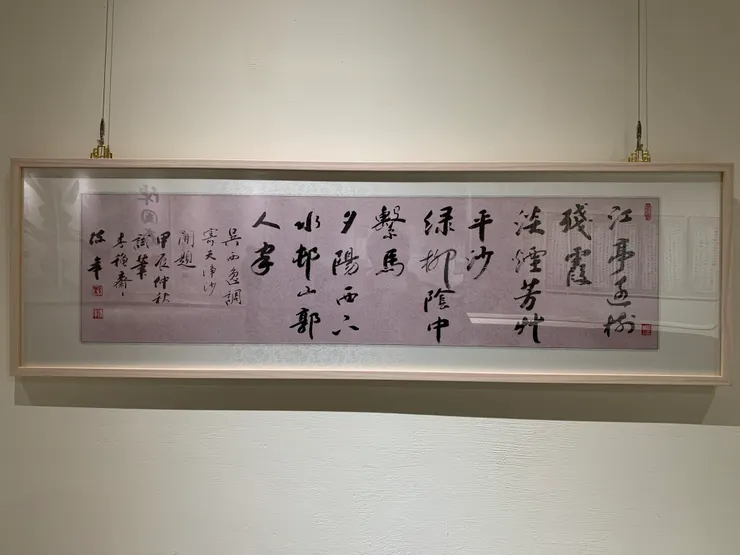 江亭遠樹
殘霞
淡煙芳艸
平沙
緑柳陰中
繫馬
夕陽西下
水邨山郭
人家
吳西逸調
寄天淨沙
閒題
甲辰仲秋
試筆
齋